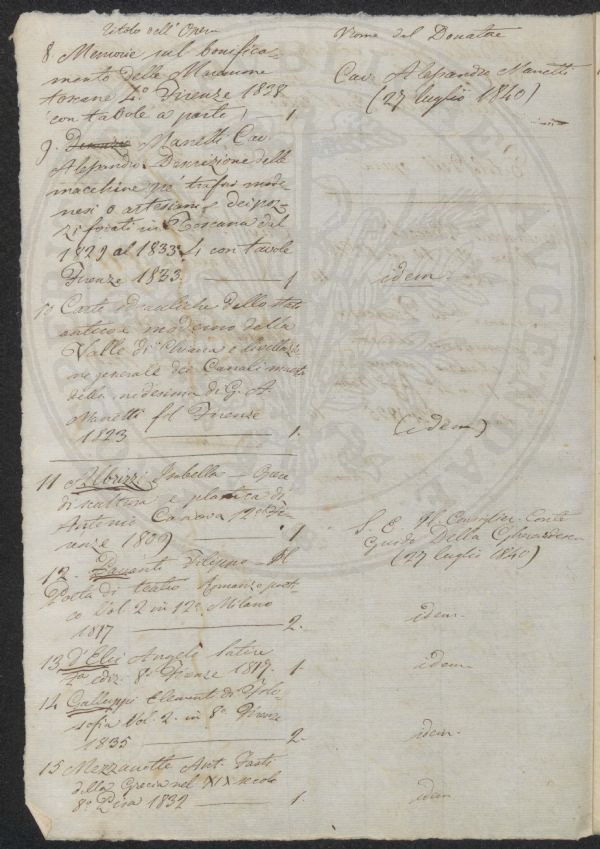 Titolo dell'Opera
Nome del Donatore
8 Memorie sul bonifica-
mento delle Maremme
toscane 4.º Firenze 1838
con tavole a parte 1.
Cav. Alessandro Manetti
(27 luglio 1840)
9. Firenze Manetti Cav.
Alessandro Descrizione delle
macchine pei trafori mode
nesi o artesiani e dei poz-
zi forati in Toscana dal
1829 al 1833. 4 con tavole
Firenze 1833 1
idem
10 Carte idrauliche dello stato
antico e moderno della
Valle di Chiana e livellazio
ne generale dei Canali maestri
della medesima di G. A.
Manetti fol Firenze
1823 1.
(idem)
11 Albrizzi Isabella – Opere
di scultura e plastica di
Antonio Canova 12º Fi
renze 1809 1
S. E. Il Consiglier Conte
Guido Della Gherardesca
(27 luglio 1840)
12. Pananti Filippo – Il
Poeta di teatro Romanzo poeti-
co Vol 2 in 12º Milano
1817 2.
idem.
13 D'Elci Angelo Satire
2a ediz. 8º Firenze 1817. 1.
idem
14 Galluppi Elementi di Filo-
sofia Vol. 2. in 8º Firenze
1835 2.
idem.
15 Mezzanotte Ant. Fasti
della Grecia nel XIX secolo
8º Pisa 1832 1.
idem